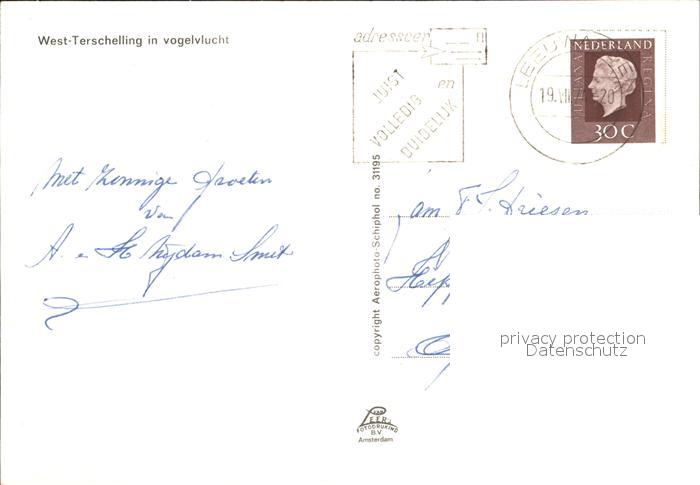 West-Terschelling in vogelvlucht
adresseer
JUIST
VOLLEDIG
en
DUIDELIJK
LEEUWA
19.VII.
-20
NEDERLAND
JULIANA REGINA
30 C
Met zonnige groeten
van
A. e Nijdam Smit
am F.S. Driesen
copyright Aerophoto-Schiphol no. 31195
privacy protection
Datenschutz
VAN
LEER
FOTODRUKIND
B.V.
Amsterdam